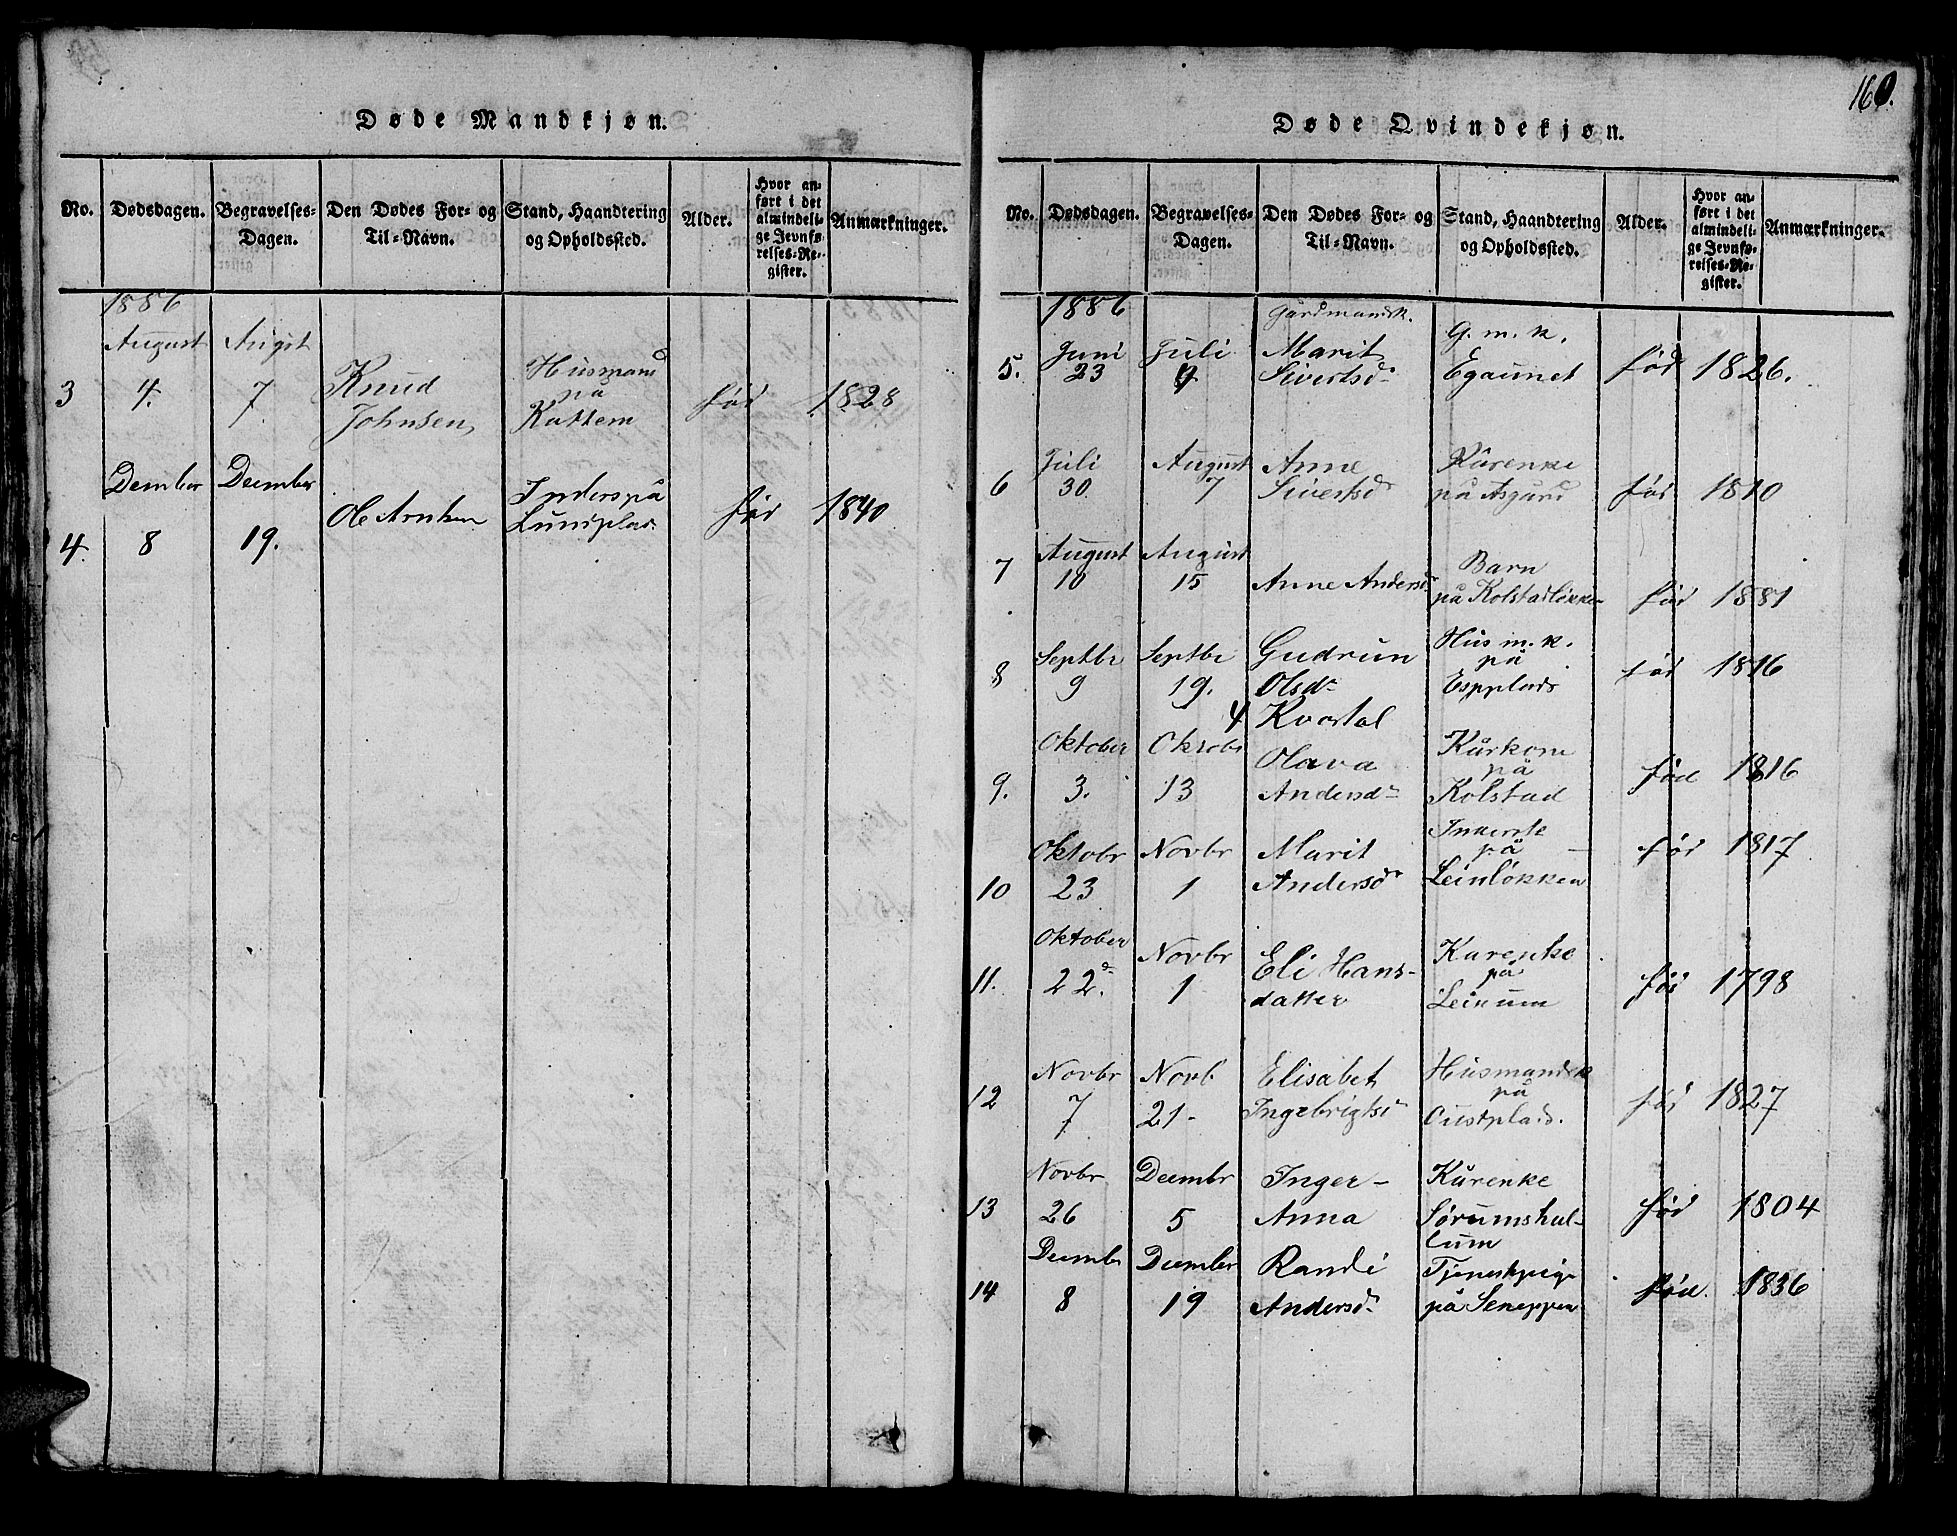 Døde Mandkjøn.
No. Dødsdagen. Begravelses-Dagen. Den Dødes For- og Til-Navn. Stand, Haandtering og Opholdssted. Alder. Hvor anført i det almindelige Jevnførelses-Register. Anmærkninger.
1886
August August
3 4. 7. Knud Johnsen, Husmand på Kattem fød 1828
Dember Deember
4. 8 19. Ole Arntsen Inders på Lundplads. fød 1840
160.
Døde Qvindekjøn.
No. Dødsdagen. Begravelses-Dagen. Den Dødes For- og Til-Navn. Stand, Haandtering og Opholdssted. Alder. Hvor anført i det almindelige Jevnførelses-Register. Anmærkninger.
1886 Gårdmandsk.
5. Juni 23 Juli Marit Sivertsd. G. m. k. Egaunet fød 1826.
6 Juli 30. August 7 Anne Sivertsd Kårenke på Asgård fød 1810
7 August 10 August 15 Anne Andersd. Barn på Kolstadløkken fød 1881
8 Septbr 9 Septbr 19. Gudrun Olsd. Hus m. k. på Espplads fød 1816
4 Kvartal
9. Oktober 3. Oktobr 13 Olava Andersd. Kårkone på Kolstad fød 1816
10 Oktobr 23 Novbr 1 Marit Andersd. på Leinløkken fød 1817
11. Oktober 22. Novbr 1 Eli Hansdatter Karenke på Leinum fød 1798
12 Novbr 7 Novb 21- Elisabet Ingebrigtsd Husmandsk på Oustplads. fød 1827
13 Novbr 26 Deembr 5 Inger-Anna Kårenke Sørumshallum fød 1804
14 Deembr 8 Deember 19 Randi Andersd. Tjenestpige på fød. 1836